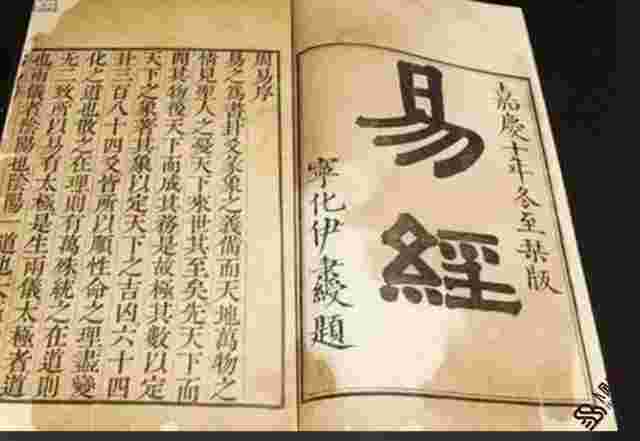 嘉慶十年冬至栞版
易經
寧化伊題
周易序
易之為書卦爻彖象之義備而天地萬物之
情見聖人之憂天下來世其至矣先天下而
開其物後天下而成其務是故極其數以定
天下之象著其象以定天下之吉凶六十四
卦三百八十四爻皆所以順性命之理盡變
化之道也散之在理則有萬殊統之在道則
无二致所以易有太極是生兩儀太極者道
也兩儀者陰陽也陰陽一道也太